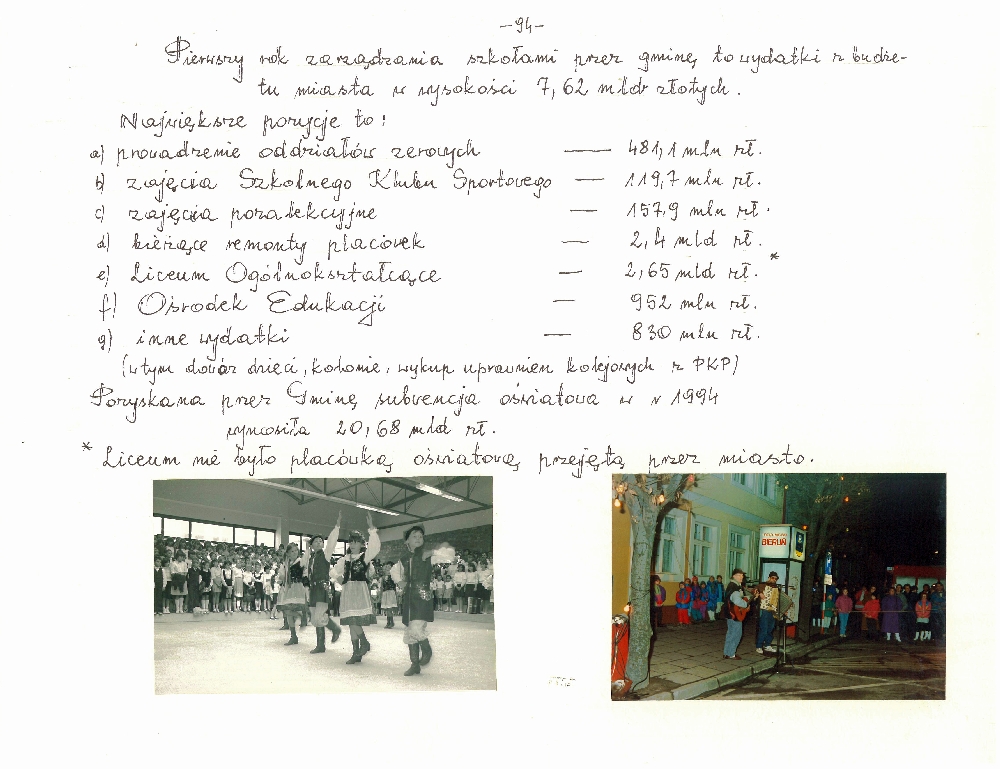 -94-
Pierwszy rok zarządzania szkołami przez gminę to wydatki z budże-
tu miasta w wysokości 7,62 mld złotych.
Największe pozycje to:
a) prowadzenie oddziałów zerowych — 481,1 mln zł.
b) zajęcia Szkolnego Klubu Sportowego — 119,7 mln zł.
c) zajęcia pozalekcyjne — 157,9 mln zł.
d) bieżące remonty placówek — 2,4 mld zł.
e) Liceum Ogólnokształcące — 2,65 mld zł. *
f) Ośrodek Edukacji — 952 mln zł.
g) inne wydatki — 830 mln zł.
(w tym dowóz dzieci, kolonie, wykup uprawnien kolejowych z PKP)
Pozyskana przez Gminę subwencja oświatowa w r 1994
wynosiła 20,68 mld zł.
* Liceum nie było placówką oświatową przejętą przez miasto.
BIERUŃ